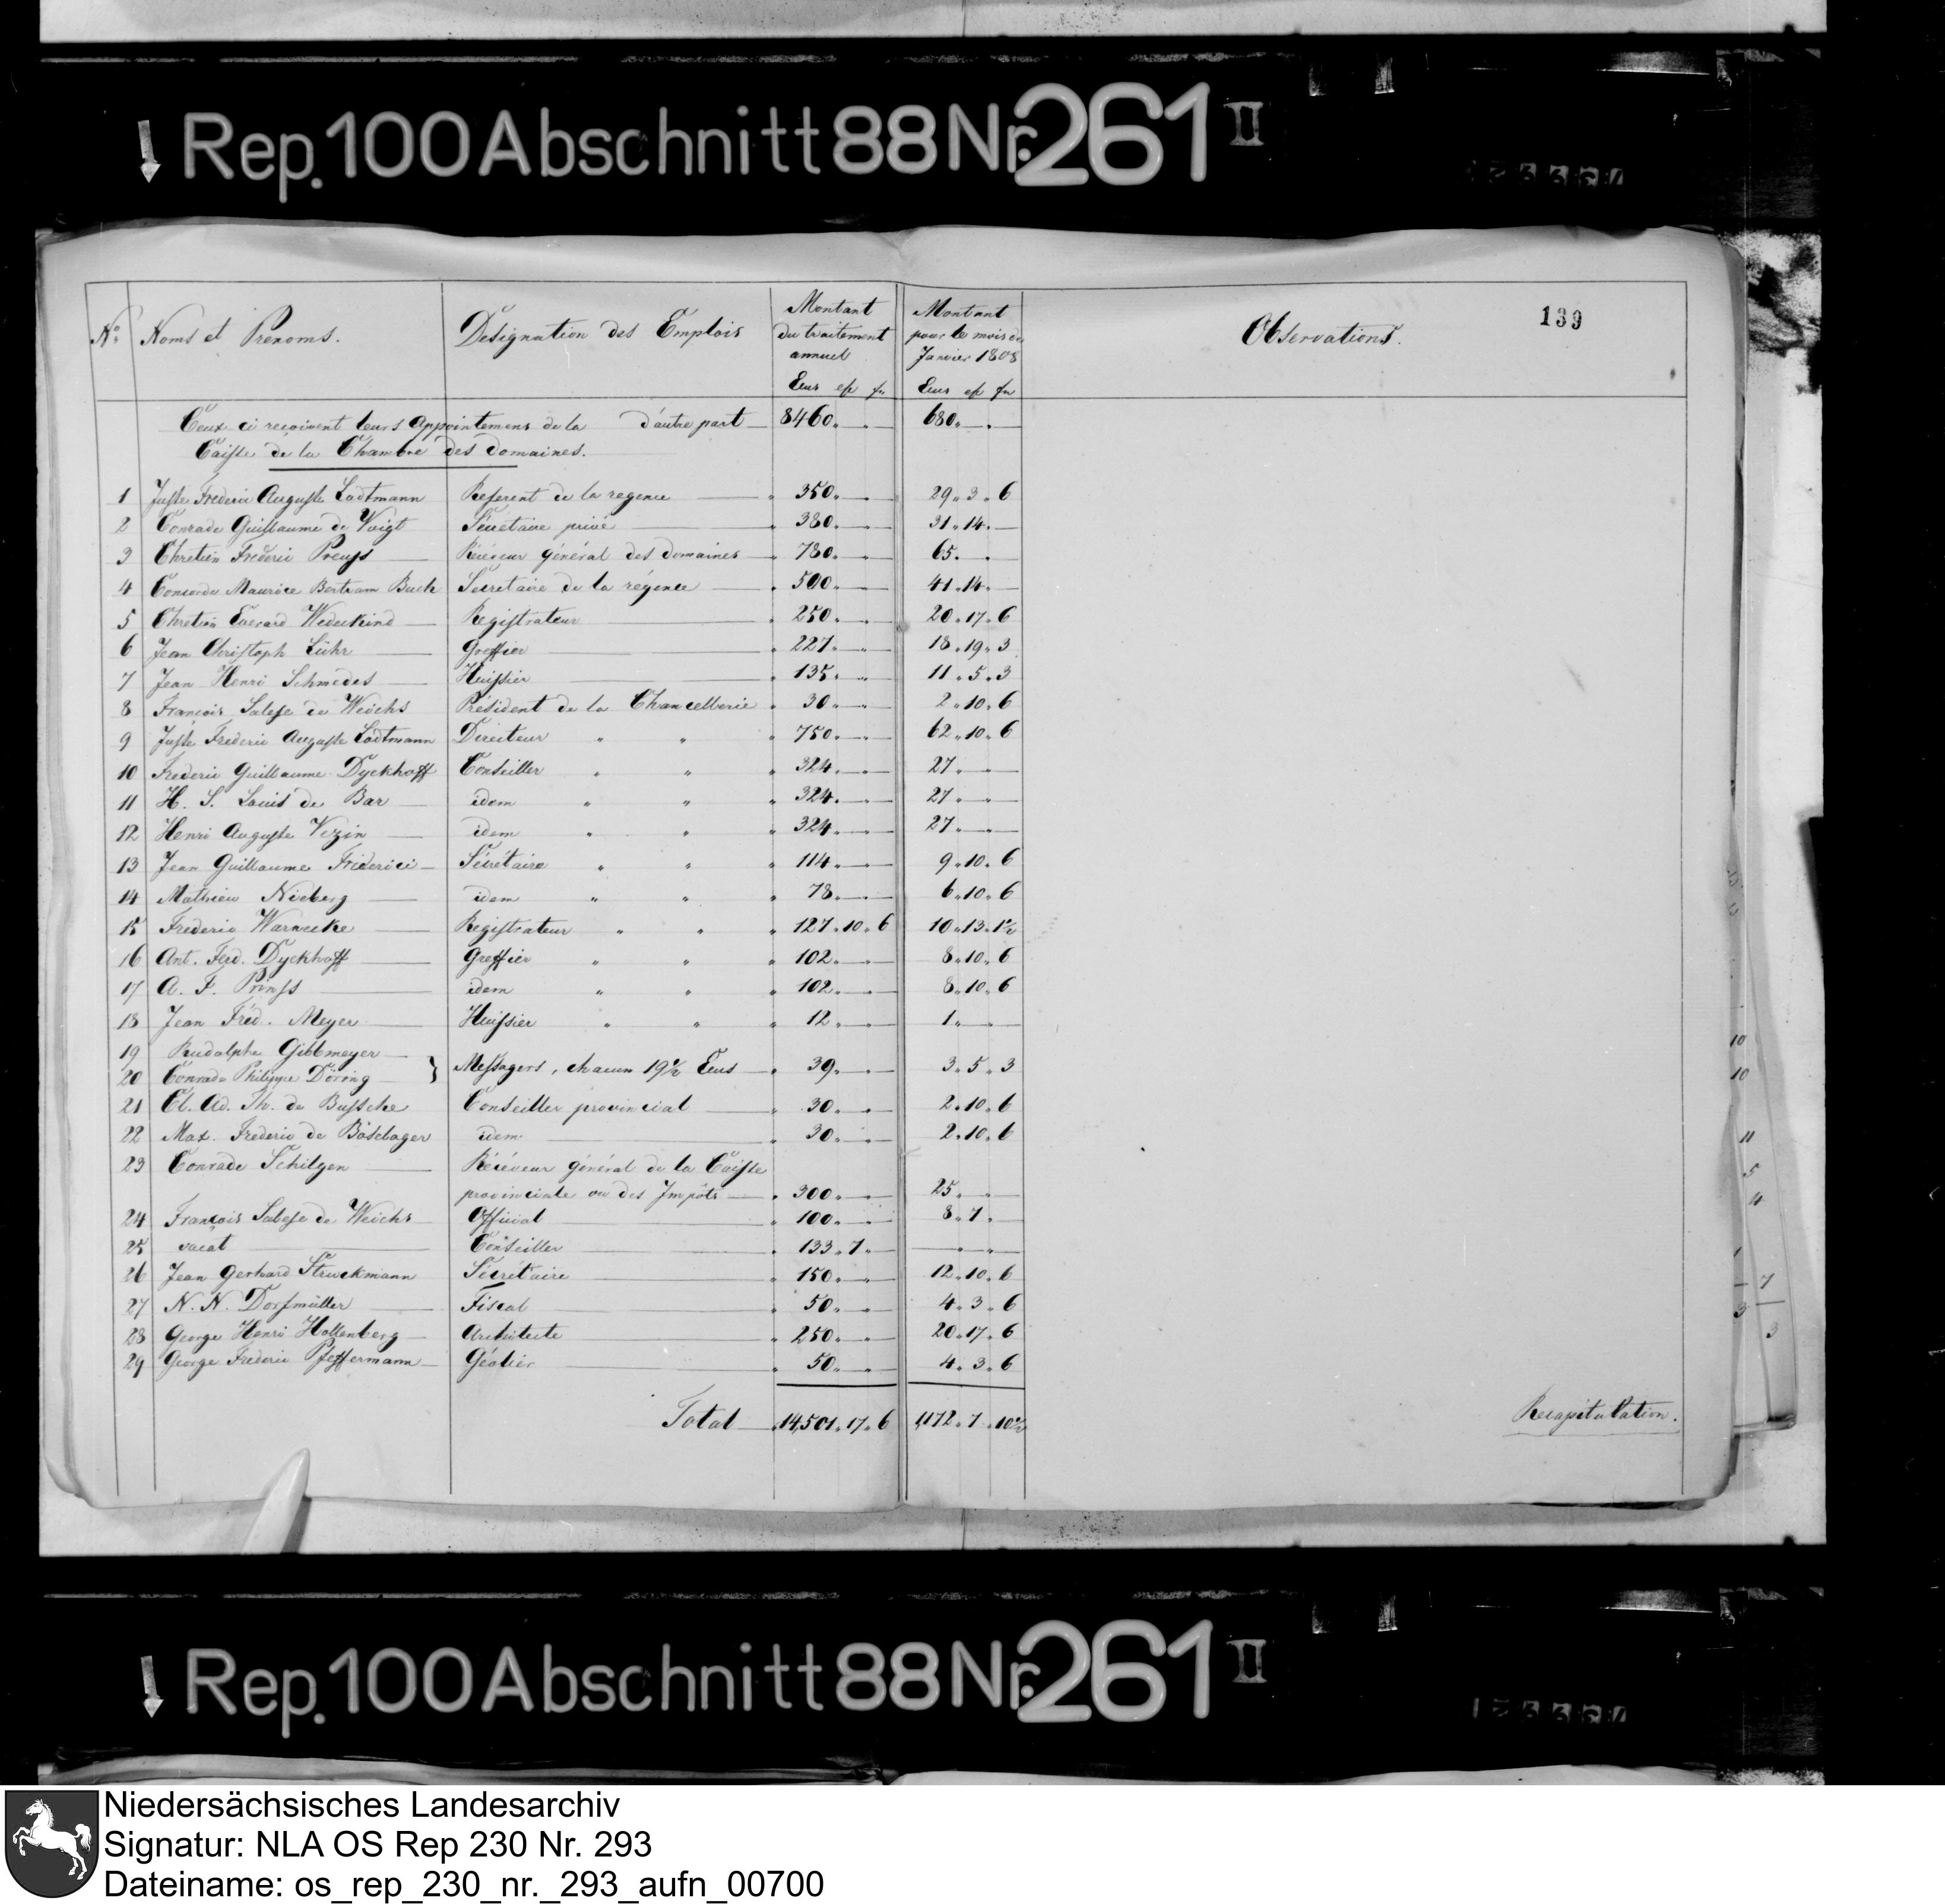 Rep. 100 Abschnitt 88 Nr. 261 II
139
Nº Noms et Prenoms. Designation des Emplois Montant du traitement annuel Montant pour le mois de Janvier 1808 Observations.
Ecus fn Ecus fn
Ceux ci reçoivent leurs Appointemens de la d'autre part 8460 " " 680 " "
Caisse de la Chambre des domaines.
1 Juste Frederic Auguste Lodtmann Referent de la regence " 350 " " 29 " 3 " 6
2 Conrade Guillaume de Voigt Sécretaire privé " 380 " " 31 " 14 "
3 Chretien Frederic Preuss Réceveur général des domaines " 780 " " 65 " "
4 Conrade Maurice Bertram Buch Secretaire de la régence " 500 " " 41 " 14 "
5 Chretien Everard Wedekind Registrateur " 250 " " 20 " 17 " 6
6 Jean Christoph Lühr Greffier " 227 " " 18 " 19 " 3
7 Jean Henri Schmedes Huissier " 135 " " 11 " 5 " 3
8 François Salese de Weichs Président de la Chancellerie " 30 " " 2 " 10 " 6
9 Juste Frederic Auguste Lodtmann Directeur " " " 750 " " 62 " 10 " 6
10 Frederic Guillaume Dyckhoff Conseiller " " " 324 " " 27 " "
11 H. S. Louis de Bar idem " " " 324 " " 27 " "
12 Henri Auguste Vezin idem " " " 324 " " 27 " "
13 Jean Guillaume Friderici Sécrétaire " " " 114 " " 9 " 10 " 6
14 Mathieu Nieberg idem " " " 78 " " 6 " 10 " 6
15 Frederic Warnecke Registrateur " " " 127 " 10 " 6 10 " 13 " 1½
16 Ant. Ferd. Dyckhoff Greffier " " " 102 " " 8 " 10 " 6
17 A. F. Prinss idem " " " 102 " " 8 " 10 " 6
18 Jean Fréd. Meyer Huissier " " " 12 " " 1 " "
19 Rudolphe Gibbmeyer
20 Conrade Philippe Döring } Messagers, chacun 19½ Ecus " 39 " " 3 " 5 " 3
21 Cl. Ad. Th. de Bussche Conseiller provincial " 30 " " 2 " 10 " 6
22 Max. Frederic de Böselager idem " 30 " " 2 " 10 " 6
23 Conrade Schilgen Réceveur général de la Caisse
provinciale ou des Impôts " 300 " " 25 " "
24 François Salese de Weichs Official " 100 " " 8 " 7 "
25 vacat Conseiller " 133 " 7 " " "
26 Jean Gerhard Struckmann Sécrétaire " 150 " " 12 " 10 " 6
27 N. N. Dorfmüller Fiscal " 50 " " 4 " 3 " 6
28 George Henri Hollenberg Architecte " 250 " " 20 " 17 " 6
29 George Frederic Pfeffermann Géolier " 50 " " 4 " 3 " 6
Total " 14,501 " 17 " 6 1,172 " 7 " 10½
Recapitulation.
Rep. 100 Abschnitt 88 Nr. 261 II
Niedersächsisches Landesarchiv
Signatur: NLA OS Rep 230 Nr. 293
Dateiname: os_rep_230_nr._293_aufn_00700